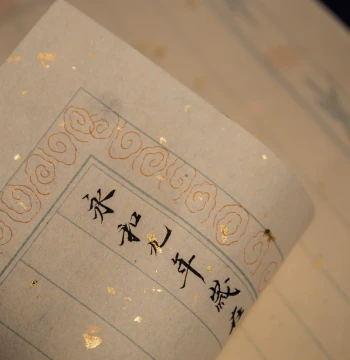 永和九年歲